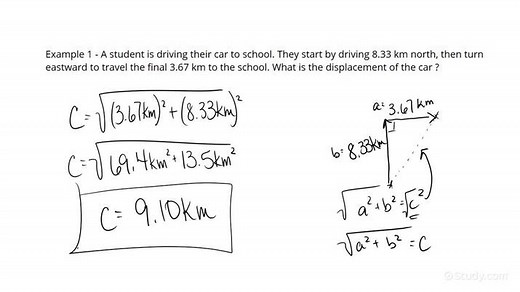 Example 1 - A student is driving their car to school. They start by driving 8.33 km north, then turn
eastward to travel the final 3.67 km to the school. What is the displacement of the car ?
C=√(3.67km)²+(8.33km)²
C=√69.4km²+13.5km²
C= 9.10km
a=3.67km
b=8.33km
√a²+b²=√c²
√a²+b² =C
Study.com